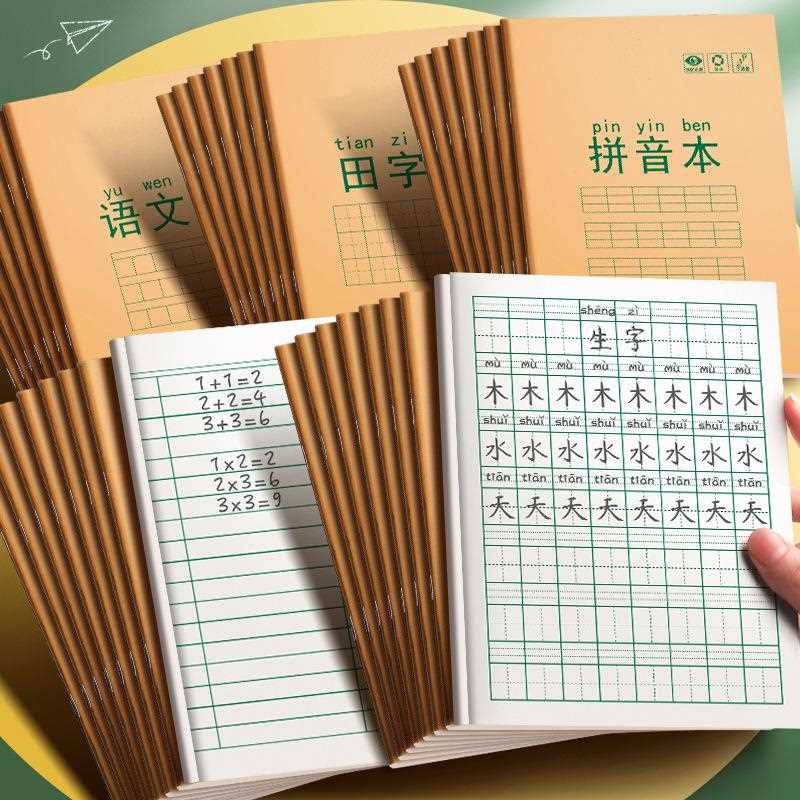 yu wen
语文
tian zi
田字
pin yin ben
拼音本
1+1=2
2+2=4
3+3=6
1×2=2
2×3=6
3×3=9
shēng zì
生字
mù mù mù mù mù mù mù mù
木木木木木木木木
shuǐ shuǐ shuǐ shuǐ shuǐ shuǐ shuǐ shuǐ
水水水水水水水水
tiān tiān tiān tiān tiān tiān tiān tiān
天天天天天天天天